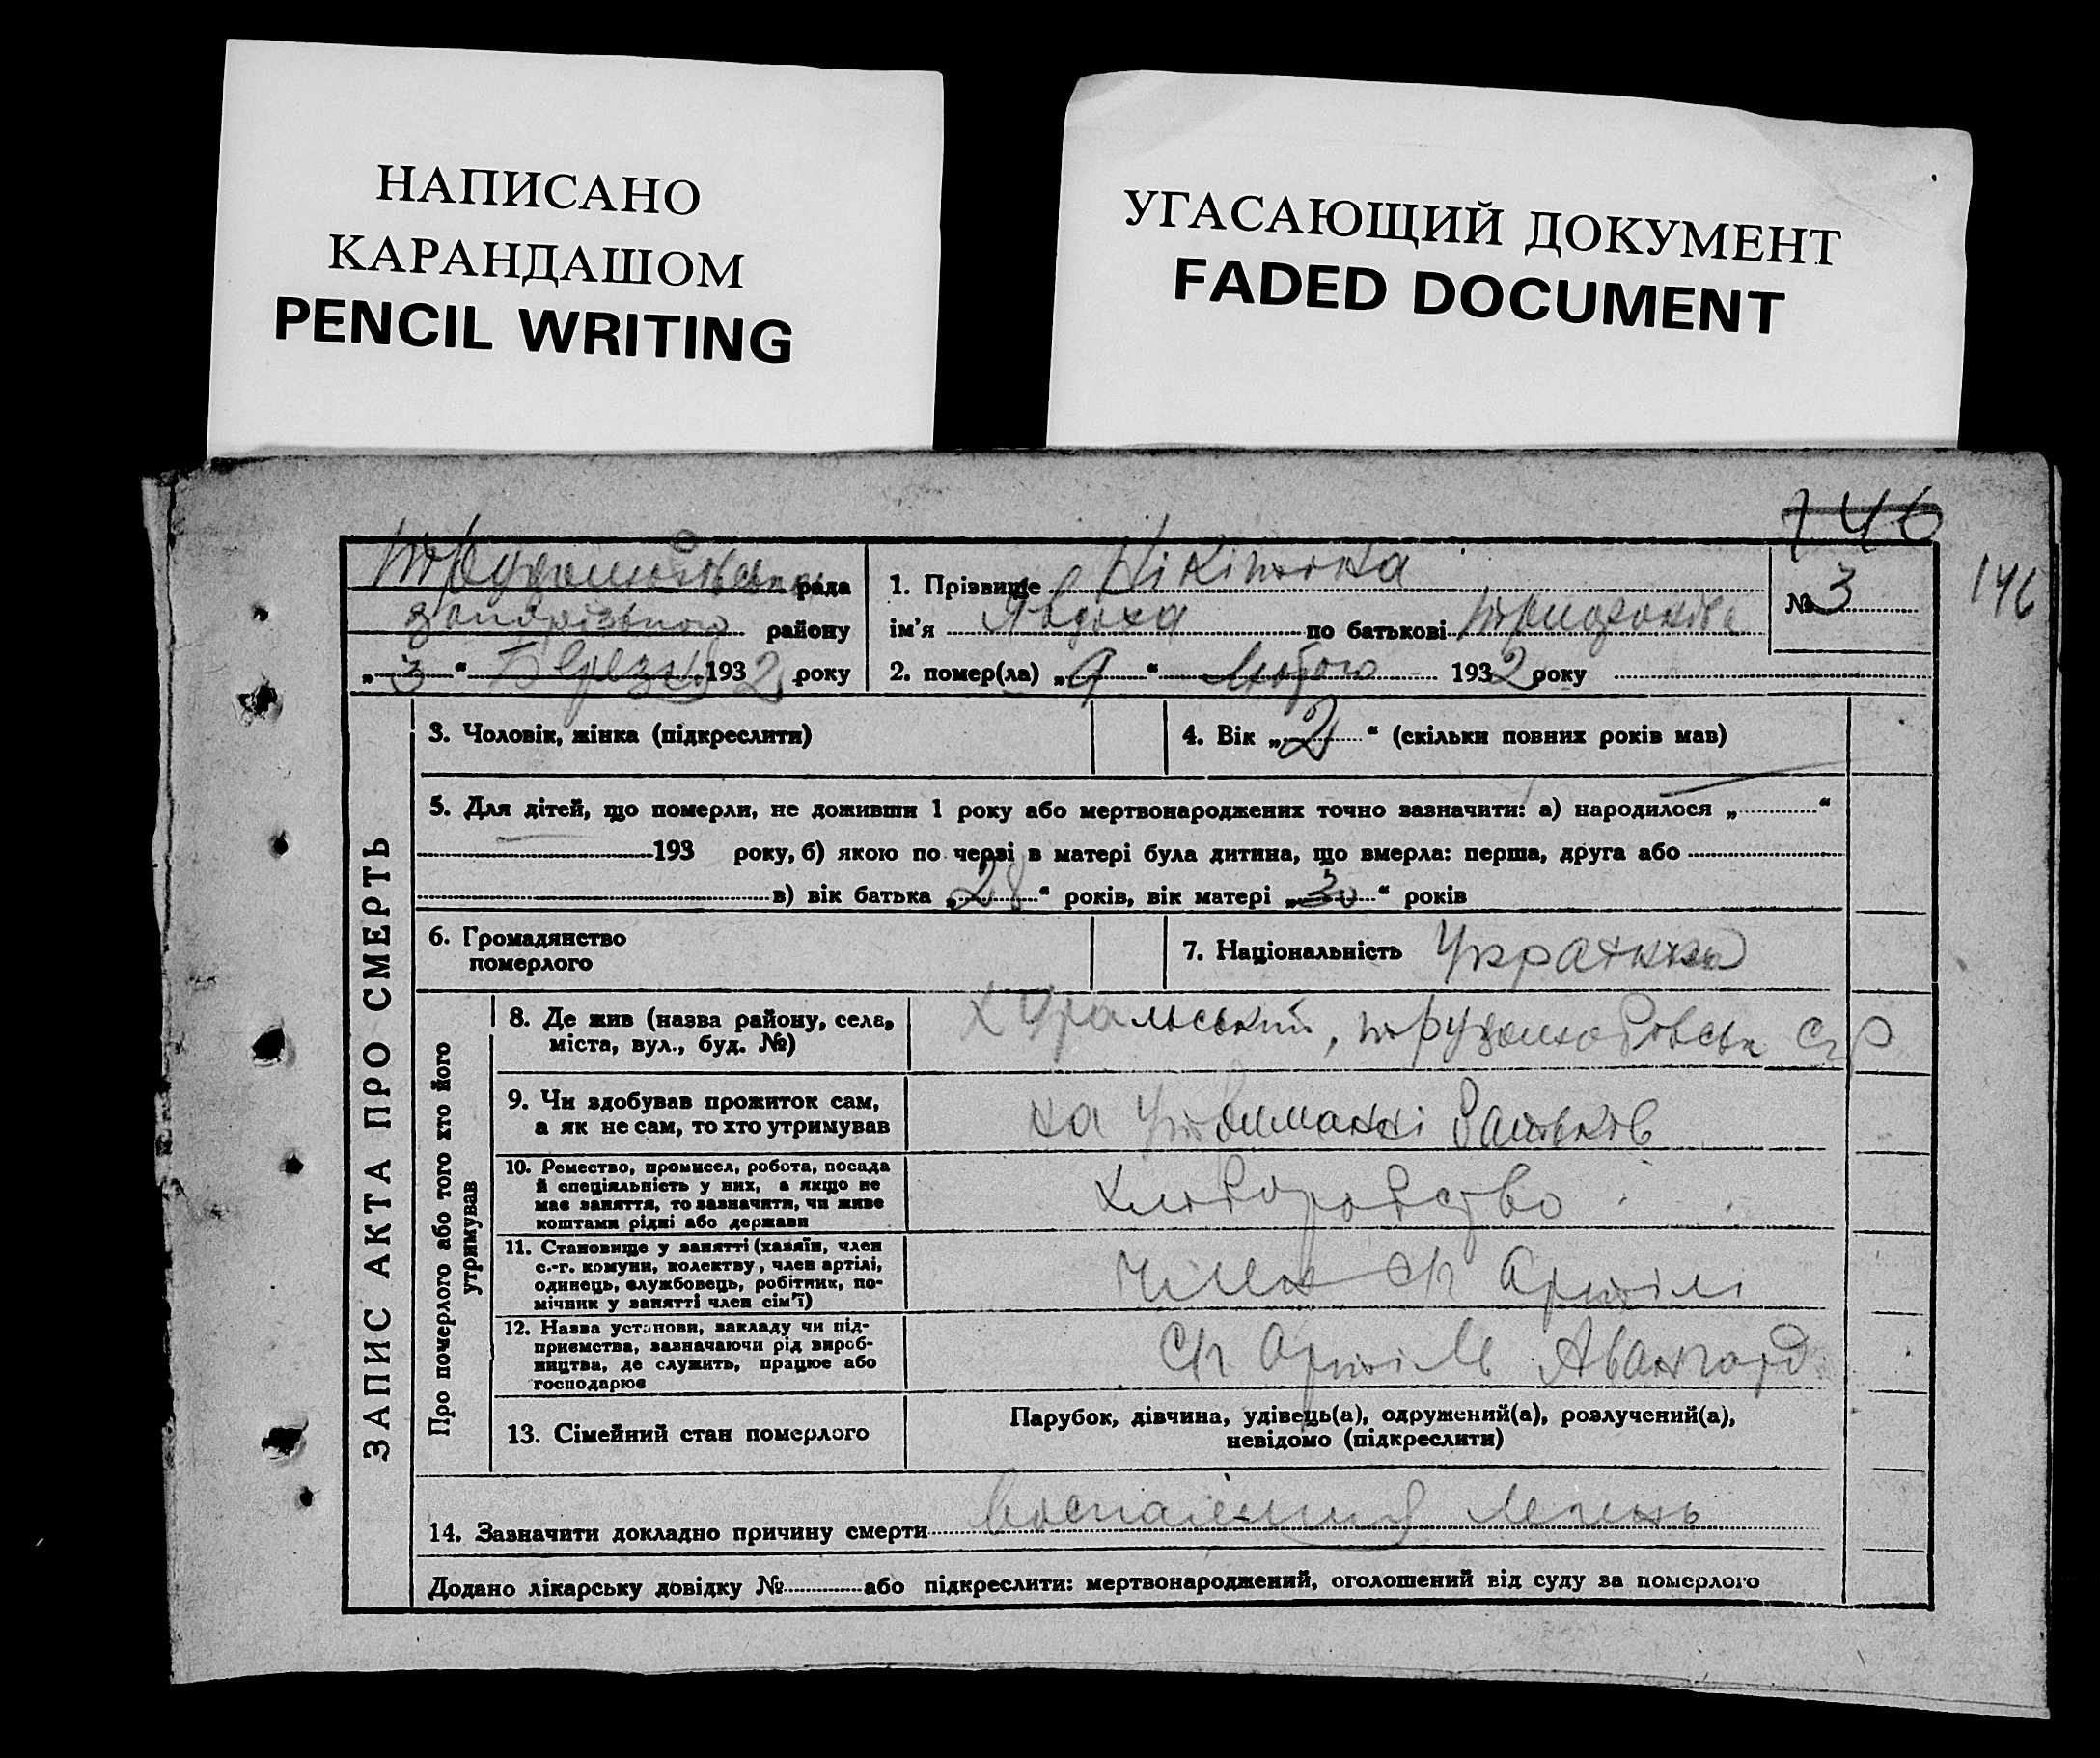 НАПИСАНО
КАРАНДАШОМ
PENCIL WRITING
УГАСАЮЩИЙ ДОКУМЕНТ
FADED DOCUMENT
746
146
рада
запорізького району
„3“ Березня 1932 року
1. Прізвище Нікітіна
ім’я Явдоха по батькові
2. помер(ла) „9“ Лютого 1932 року
№ 3
ЗАПИС АКТА ПРО СМЕРТЬ
3. Чоловік, жінка (підкреслити)
4. Вік „2“ (скільки повних років мав)
5. Для дітей, що померли, не доживши 1 року або мертвонароджених точно зазначити: а) народилося „ “
193 року, б) якою по черзі в матері була дитина, що вмерла: перша, друга або
в) вік батька „28“ років, вік матері „30“ років
6. Громадянство
померлого
7. Національність Українка
Про померлого або того хто його
утримував
8. Де жив (назва району, села,
міста, вул., буд. №)
х Уральський, с/р
9. Чи здобував прожиток сам,
а як не сам, то хто утримував
на утриманні батьків
10. Ремество, промисел, робота, посада
й спеціяльність у них, а якщо не
має заняття, то зазначити, чи живе
коштами рідні або держави
хліборобство
11. Становище у занятті (хазяїн, член
с.-г. комуни, колективу, член артілі,
одинець, службовець, робітник, по-
мічник у занятті член сім’ї)
член с/г Артілі
12. Назва установи, закладу чи під-
приємства, зазначаючи рід вироб-
ництва, де служить, працює або
господарює
с/г Артіль Авангард
13. Сімейний стан померлого
Парубок, дівчина, удівець(а), одружений(а), розлучений(а),
невідомо (підкреслити)
14. Зазначити докладно причину смерти Воспаления легень
Додано лікарську довідку № або підкреслити: мертвонароджений, оголошений від суду за померлого